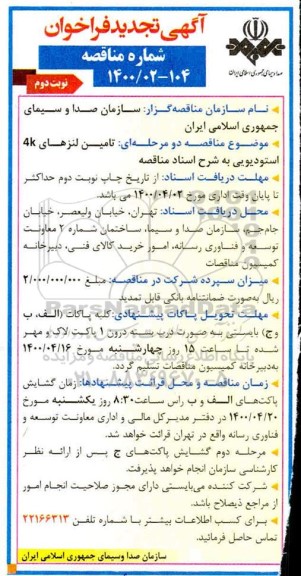 آگهی تجدید فراخوان
شماره مناقصه
۱۴۰۰/۰۲-۱۰۴
صدا و سیمای جمهوری اسلامی ایران
نوبت دوم
نـام سـازمان مناقصه‌گـزار: سـازمان صـدا و سـیمای
جمهوری اسلامی ایران
موضـوع مناقصـه دو مرحلـه‌ای: تامیـن لنزهـای 4k
استودیویی به شرح اسناد مناقصه
مهلـت دریافـت اسـناد: از تاریخ چاپ نوبت دوم حداکثر
تا پایان وقت اداری مورخ ۱۴۰۰/۰۴/۰۲ می باشد.
محـل دریافـت اسـناد: تهران، خیابان ولیعصر، خیابان
جام‌جم، سازمان صدا و سیما، ساختمان شماره ۲ معاونت
توسعه و فناوری رسانه، امور خرید کالای فنی، دبیرخانه
کمیسیون مناقصات
میـزان سـپرده شـرکت در مناقصـه: مبلـغ ۲/۰۰۰/۰۰۰/۰۰۰
ریال به‌صورت ضمانتنامه بانکی قابل تمدید
مهلت تحویل پاکات پیشنهادی: کلیه پاکات (الـف، ب
و ج) بایستی به صورت درب بسته درون ۱ پاکت لاک و مهر
شده تا ساعت ۱۵ روز چهارشنبه مورخ ۱۴۰۰/۰۴/۱۶
به‌دبیرخانه کمیسیون مناقصات تسلیم گردد.
زمان مناقصه و محل قرائت پیشنهادها: زمان گشایش
پاکت‌های الـف و ب راس ساعت ۸:۳۰ روز یکشنبه مورخ
۱۴۰۰/۰۴/۲۰ در دفتر مدیرکل مالی و اداری معاونت توسعه و
فناوری رسانه واقع در تهران قرائت خواهد شد.
مرحله دوم گشایش پاکت‌های ج پس از ارائه نظر
کارشناسی سازمان انجام خواهد پذیرفت.
شرکت کننده می‌بایستی دارای مجوز صلاحیت انجام امور
از مراجع ذیصلاح باشد.
برای کسب اطلاعات بیشتر با شماره تلفن ۲۲۱۶۶۳۱۳
تماس حاصل فرمائید.
سازمان صدا وسیمای جمهوری اسلامی ایران